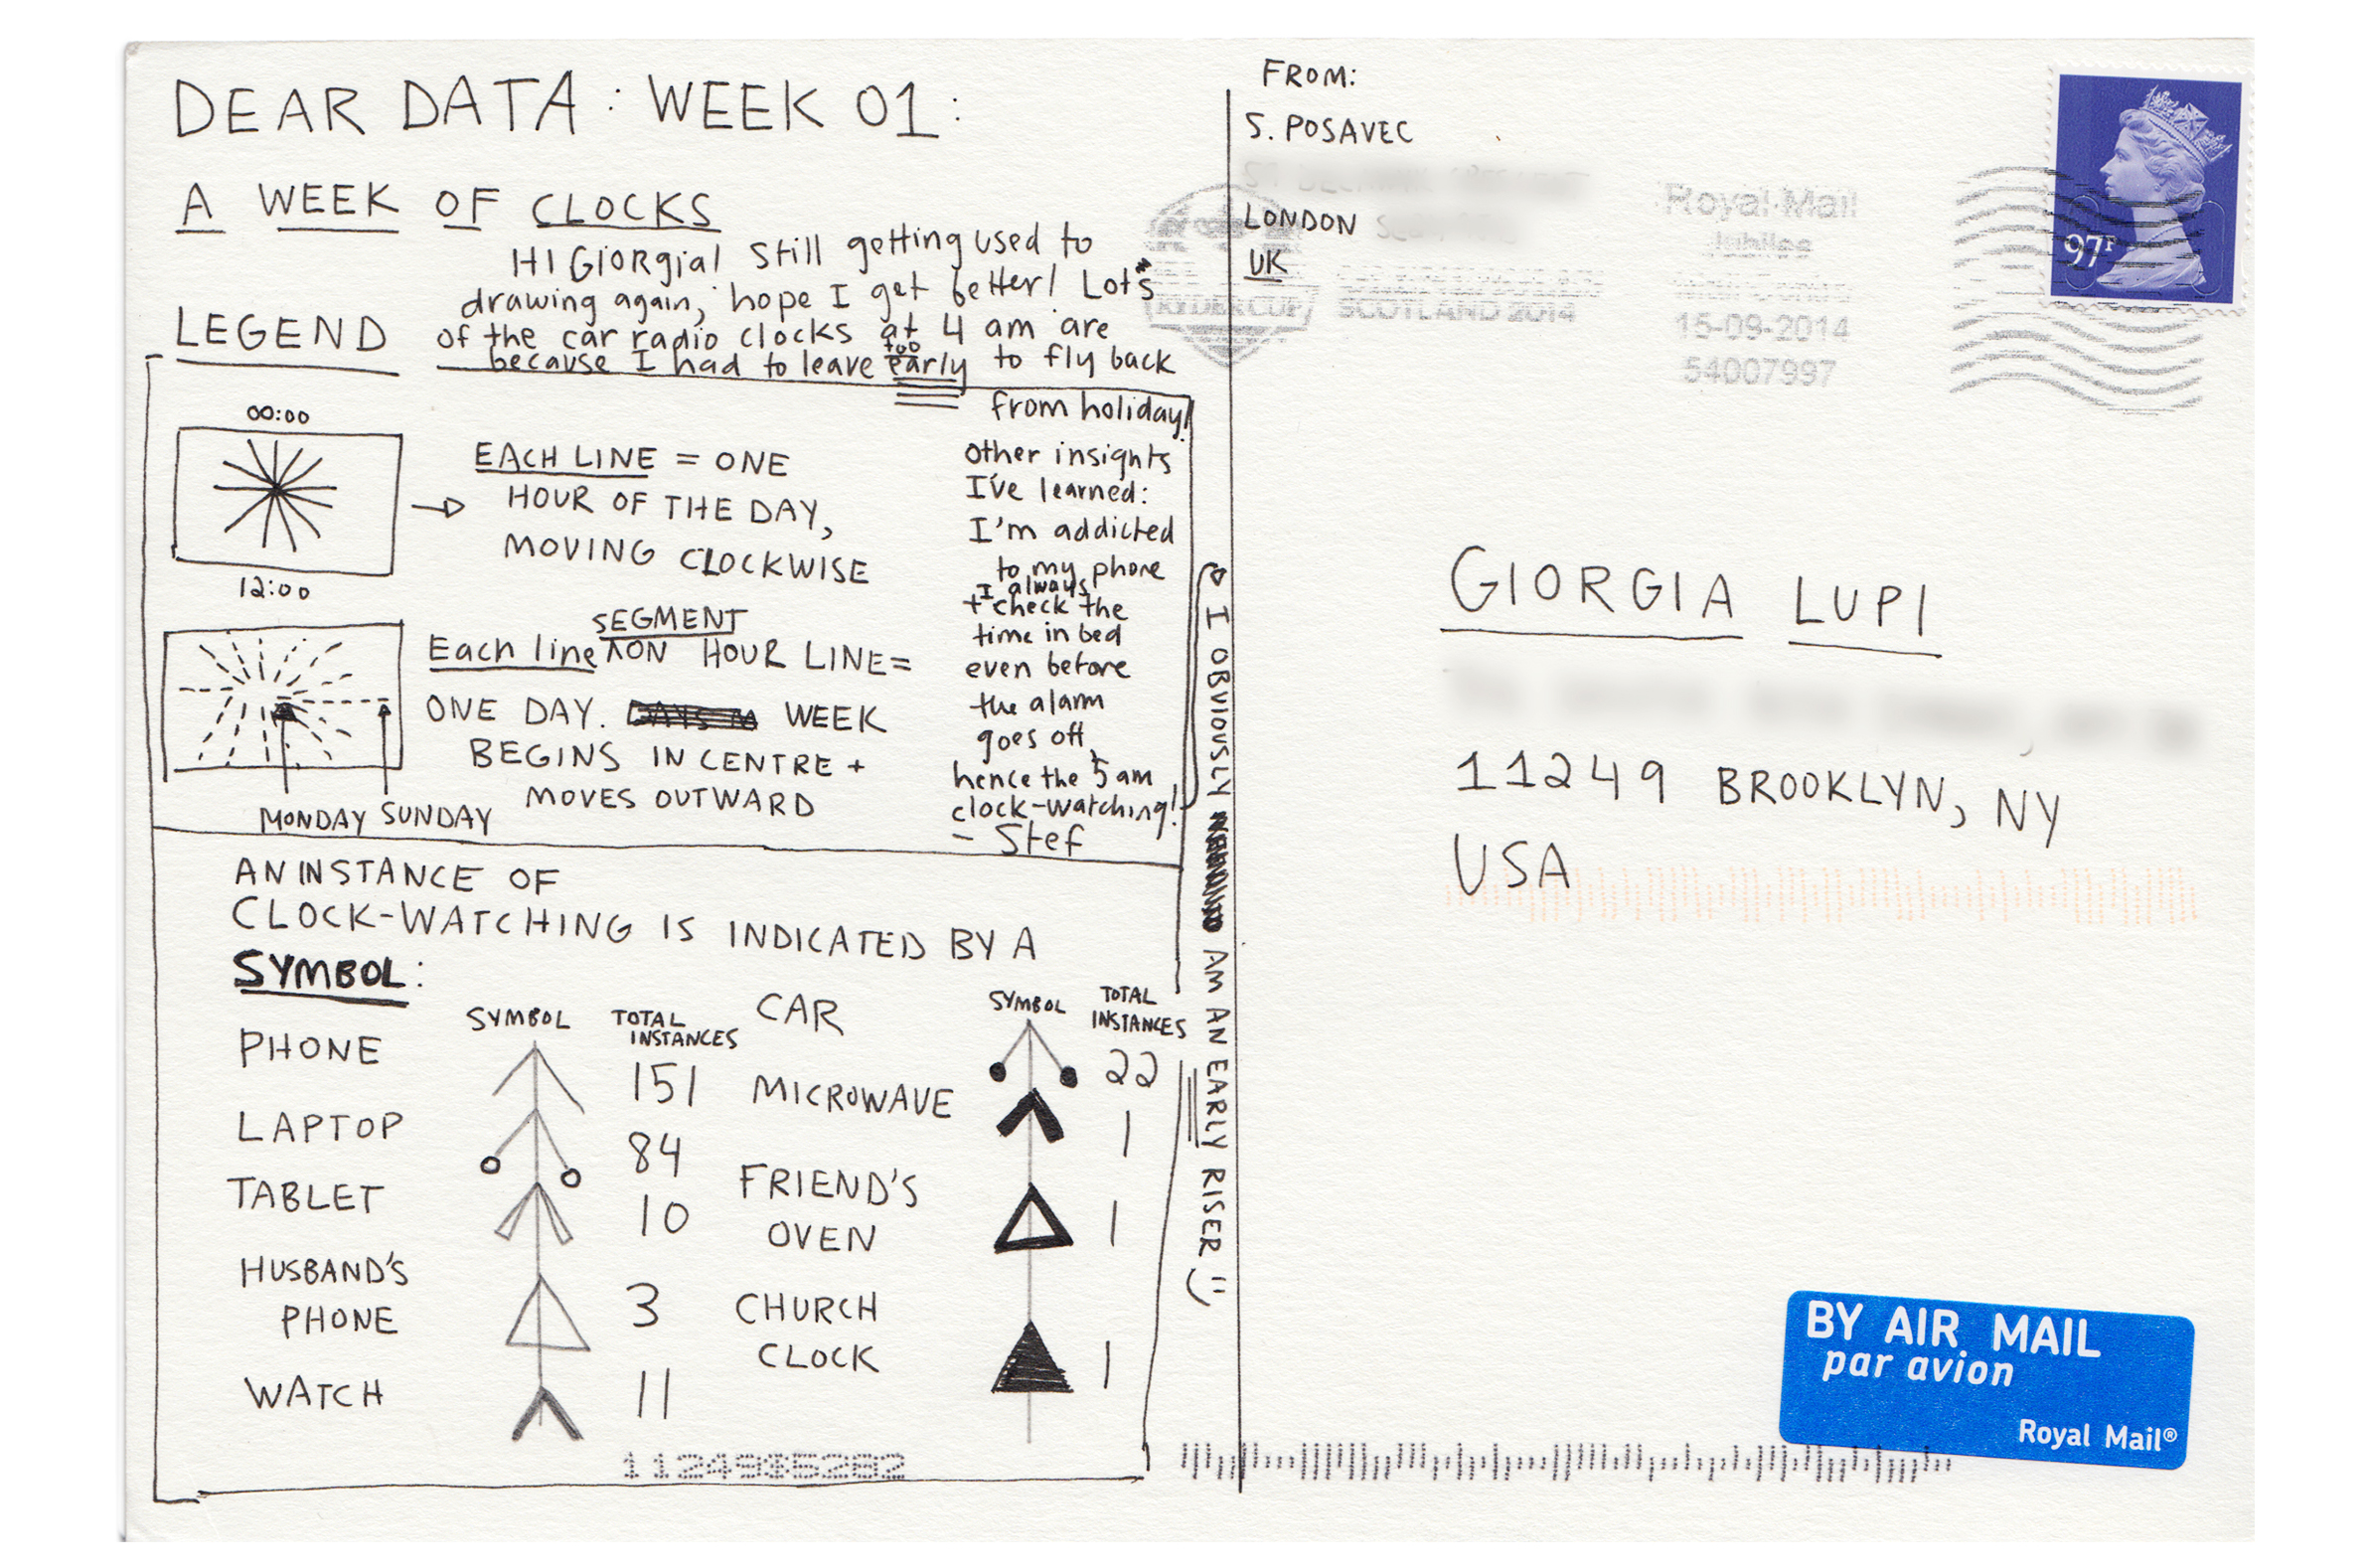 DEAR DATA: WEEK 01:
A WEEK OF CLOCKS
HI GIORGIA! Still getting used to
drawing again, hope I get better! Lots
of the car radio clocks at 4 am are
because I had to leave too early to fly back
from holiday!
other insights
I've learned:
I'm addicted
to my phone
+ I always check the
time in bed
even before
the alarm
goes off,
hence the 5 am
clock-watching!
- Stef
I OBVIOUSLY AM AN EARLY RISER
LEGEND
00:00
12:00
EACH LINE = ONE
HOUR OF THE DAY,
MOVING CLOCKWISE
Each line SEGMENT ON HOUR LINE =
ONE DAY. WEEK
BEGINS IN CENTRE +
MOVES OUTWARD
MONDAY SUNDAY
AN INSTANCE OF
CLOCK-WATCHING IS INDICATED BY A
SYMBOL:
SYMBOL TOTAL INSTANCES
PHONE 151
LAPTOP 84
TABLET 10
HUSBAND'S
PHONE 3
WATCH 11
SYMBOL TOTAL INSTANCES
CAR 22
MICROWAVE 1
FRIEND'S
OVEN 1
CHURCH
CLOCK 1
FROM:
S. POSAVEC
LONDON
UK
RYDER CUP
SCOTLAND 2014
Royal Mail
Jubilee
Mail Centre
15-09-2014
54007997
97P
GIORGIA LUPI
11249 BROOKLYN, NY
USA
BY AIR MAIL
par avion
Royal Mail®